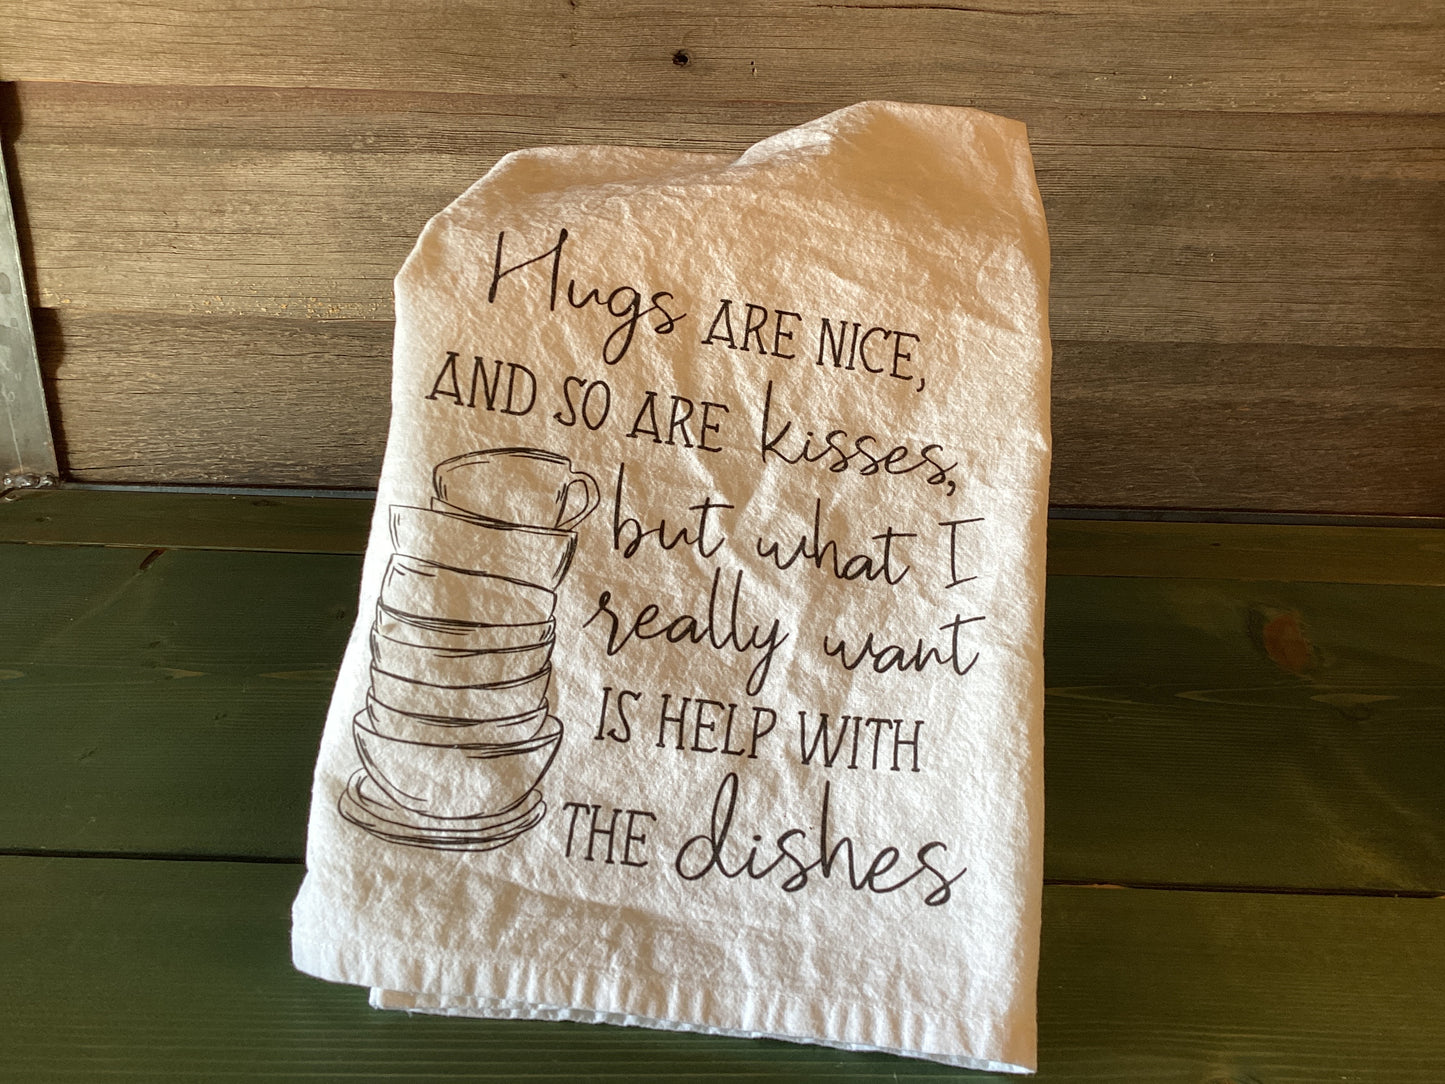 Hugs ARE NICE,
AND SO ARE kisses,
but what I
really want
IS HELP WITH
THE dishes